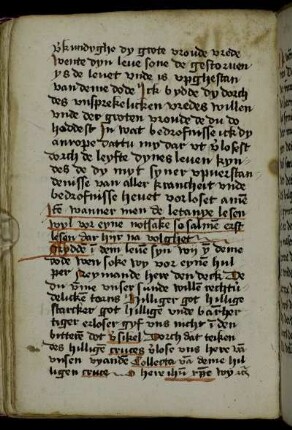 vorkundyghe dy grote vroude vrede
wente dyn leue sone de gestoruen
ys de leuet vnde is vpghestan
van deme dode Ick bydde dy dorch
des vnsprekelicken vredes willen
vnde der groten vroude de du do
haddest In wat bedrofnisse ick dy
anrope dattu my dar vt vorlosest
dorch de leyfte dynes leuen kyn
des de dy myt syner vpuerstan
denisse van aller kranckeit vnde
bedrofnisse heuet vorloset amen
Ite wanner men de letanye lesen
wyl vor eyne notsake so salme erst
lesen dar hir na volghet
Mydde in dem leue syn wy yn deme
dode wen soke wy vor eynen hul
per Neymande here den deck De
du vmme vnser sunde willen rechtu
delicke torns Hilliger got hillige
starcker got hillige vnde barmher
tiger erloser gyf vns nicht in den
bitteren dot versikel Dorch dat teiken
des hilligen cruces vorlose vns here van
vnsen vyande Collecta van deme hil
ligen cruce O here ihesu wy